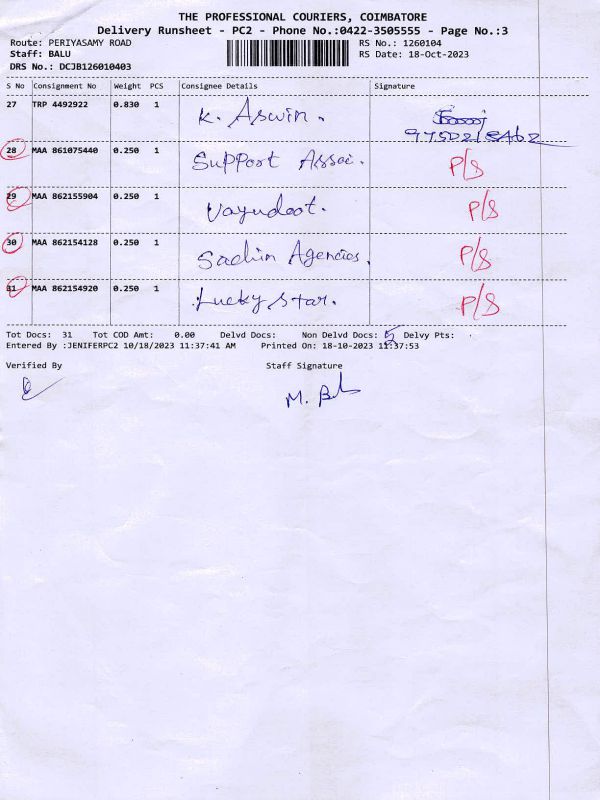 THE PROFESSIONAL COURIERS, COIMBATORE
Delivery Runsheet - PC2 - Phone No.:0422-3505555 - Page No.:3
Route: PERIYASAMY ROAD RS No.: 1260104
Staff: BALU RS Date: 18-Oct-2023
DRS No.: DCJB126010403
S No Consignment No Weight PCS Consignee Details Signature
27 TRP 4492922 0.830 1 K. Aswin.
28 MAA 861075440 0.250 1 Support Assoi. P/S
29 MAA 862155904 0.250 1 Vayudoot. P/S
30 MAA 862154128 0.250 1 Sachin Agencies. P/S
31 MAA 862154920 0.250 1 Lucky Star. P/S
Tot Docs: 31 Tot COD Amt: 0.00 Delvd Docs: Non Delvd Docs: 5 Delvy Pts:
Entered By :JENIFERPC2 10/18/2023 11:37:41 AM Printed On: 18-10-2023 11:37:53
Verified By Staff Signature